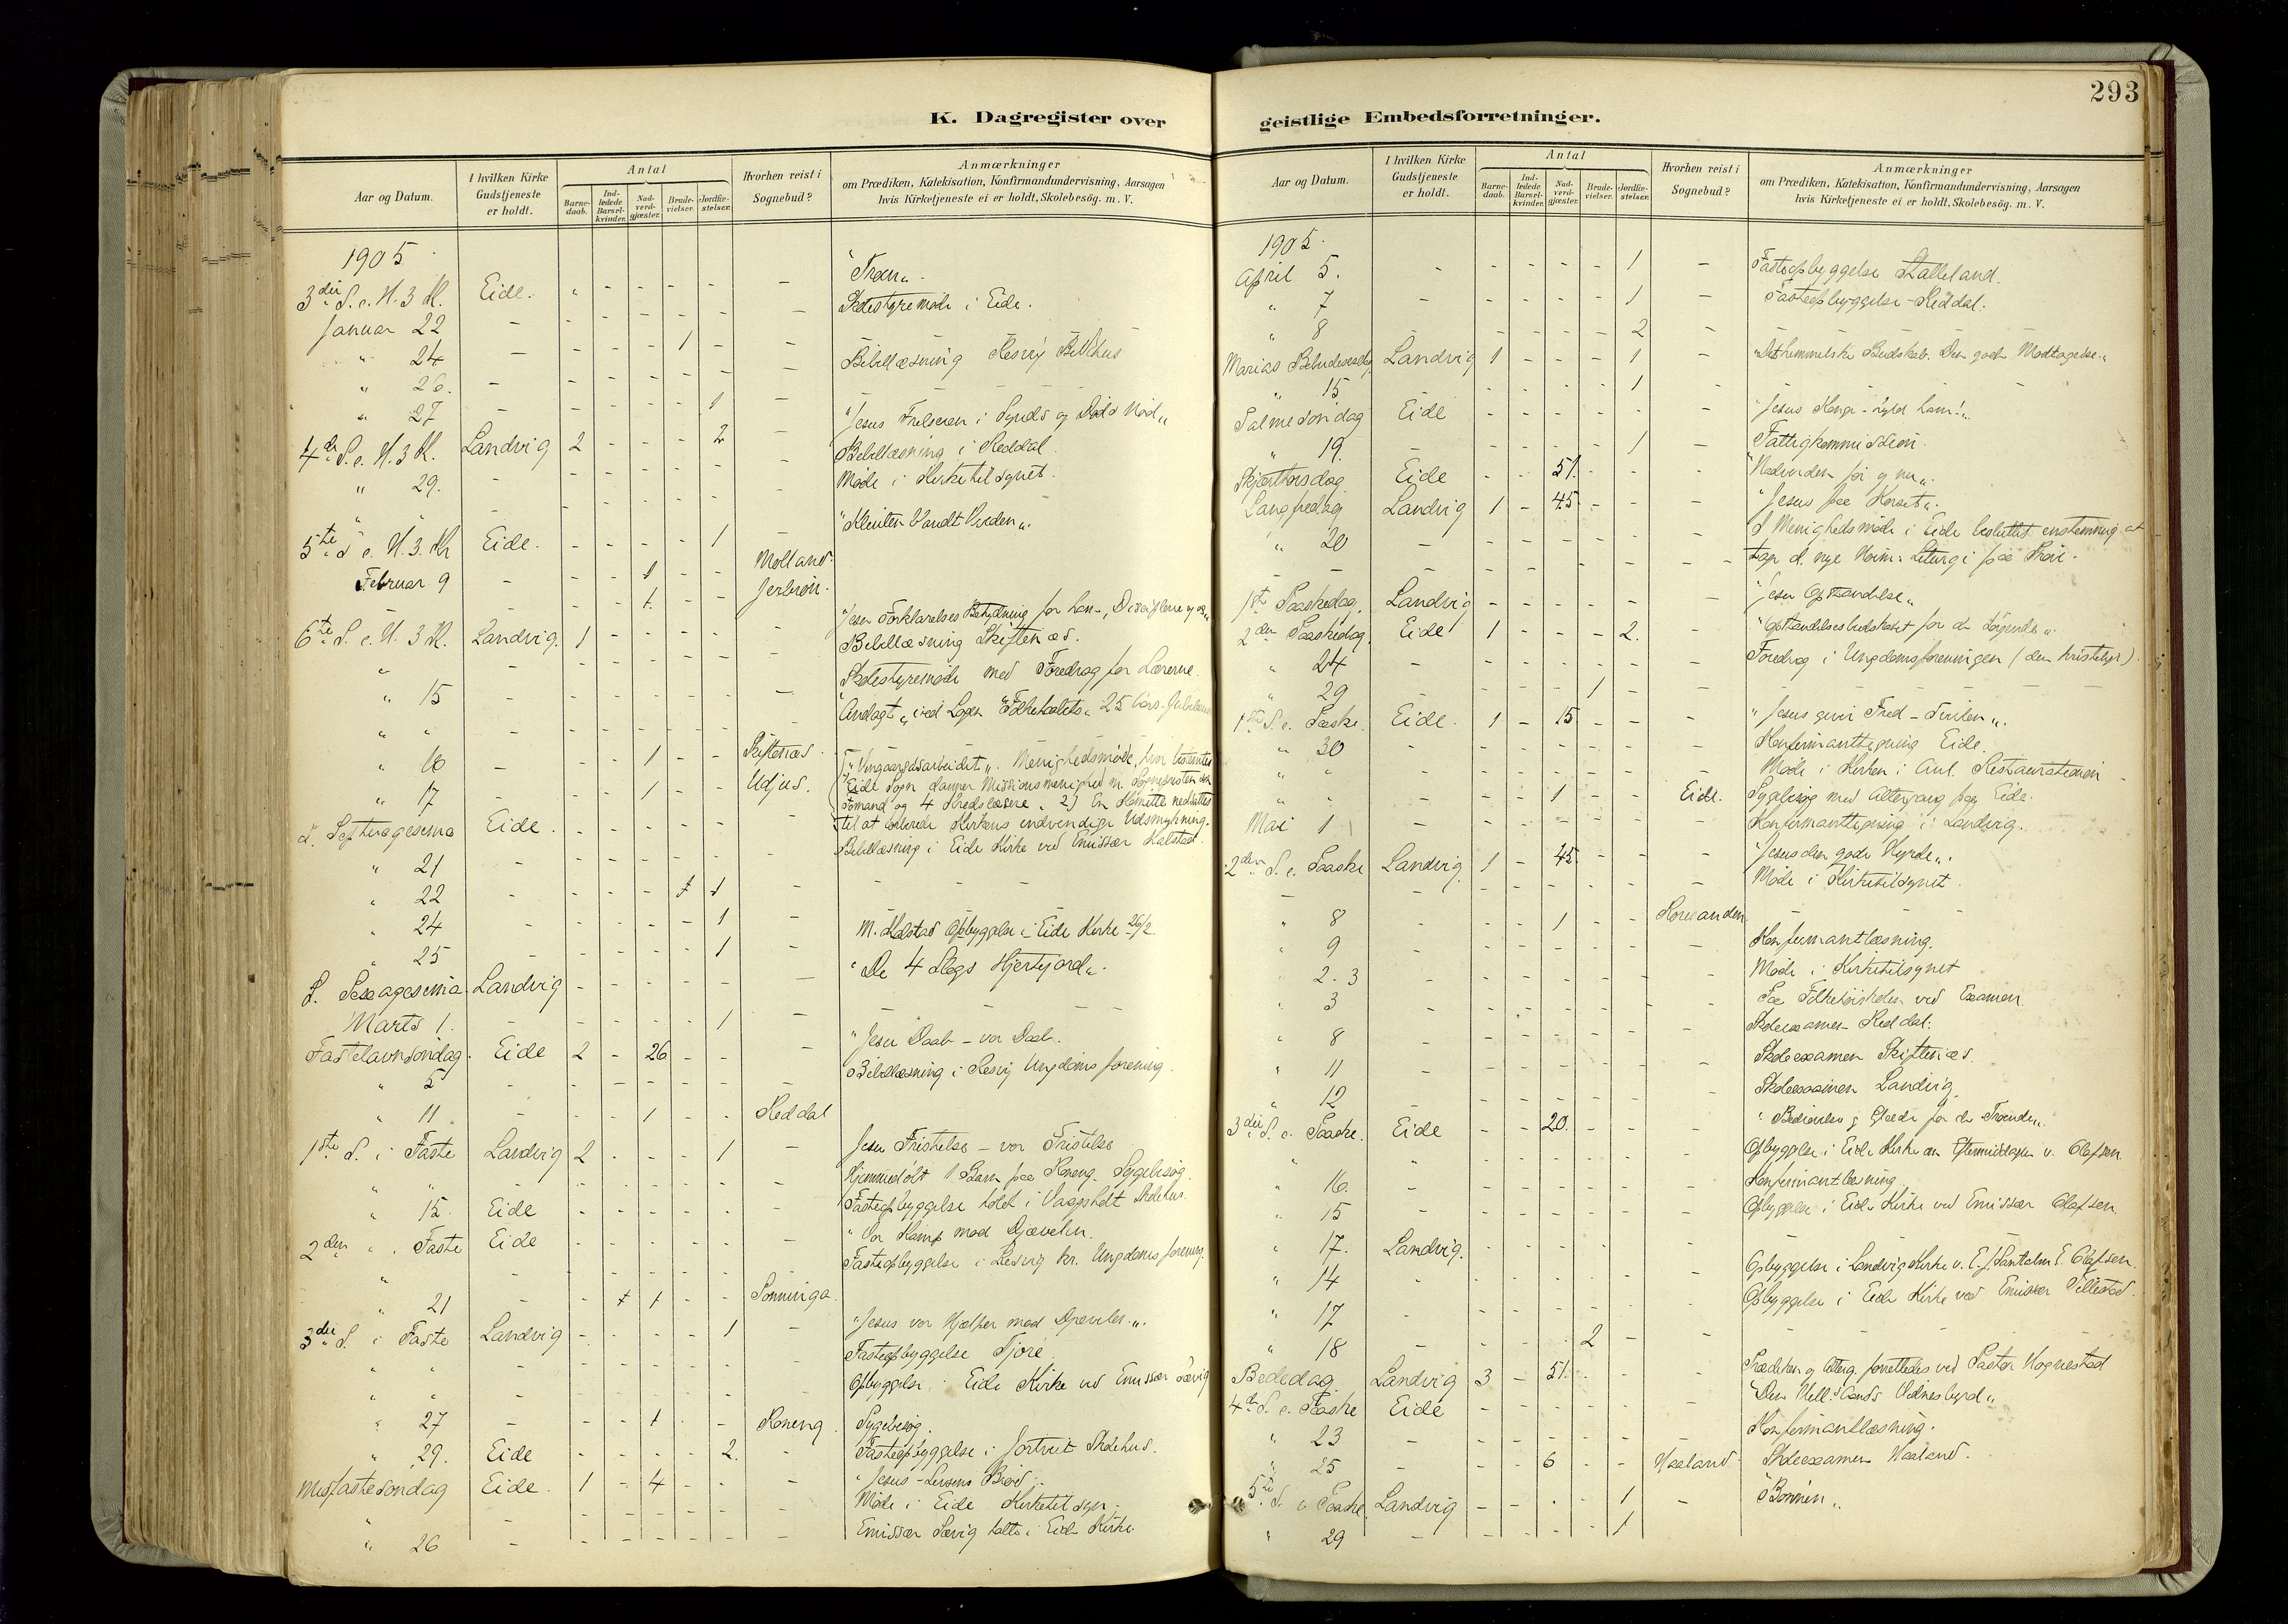 293
K. Dagregister over
Aar og Datum.
I hvilken Kirke Gudstjeneste er holdt.
Antal
Barnedaab.
Indledede Barselkvinder.
Nadverdgjæster.
Brudevielser.
Jordfæstelser.
Hvorhen reist i Sognebud?
Anmærkninger
om Prædiken, Katekisation, Konfirmandundervisning, Aarsagen
hvis Kirketjeneste ei er holdt, Skolebesög. m. V.
1905
3die S. e. H. 3 K. Eide. - - - - - - "Troen".
Januar 22 - - - - - - - Skolestyremöde i Eide.
" 24 - - - - 1 - -
" 26. - - - - - - - Bibellæsning Bedehus
" 27 - - - - - 1 -
4de S. e. H. 3 K. Landvig 2 - - - 2 - "Jesus Frelseren i Synds og Döds Nöd"
" 29. - - - - - - - Bibellæsning i Reddal.
" " - - - - - - - Möde i Kirketilsynet.
5te S. e. H. 3. K. Eide. - - - - 1 - "Klinten blandt Hveden".
Februar 9 - - - 1 - - Molland.
- - - 1. - - 
6te S. e. H. 3 K. Landvig. 1 - - - - - "Jesu Forklarelses Betydning for ham, Disciplene og os"
" - - - - - - - Bibellæsning Skiftenæs.
" 15 - - - - - - - Skolestyremöde med Foredrag for Lærerne.
" " - - - - - - - "Andagt" ved Logen 25 Aars-Jubilæum
" 16 - - - 1 - - Skiftenæs.
" 17 - - - 1 - - Udjus.
S. Septuagesima Eide. - - - - - - "Vingaardsarbeidet". Menighedsmöde, hvor bestemtes
Eide Sogn danner Missionsmenighed m. Sognepresten som
Formand og 4 2) En Komite nedsattes
til at forberede Kirkens indvendige Udsmykning.
" 21 - - - - - - - Bibellæsning i Eide Kirke ved Emissær Kalstad.
" 22 - - - - 1 1 - -
" 24 - - - - - 1 -
" 25 - - - - - 1 - M. Kalstad Opbyggelse i Eide Kirke 26/2.
S. Sexagesima Landvig - - - - - - "De 4 Slags Hjertejord".
Marts 1. - - - - - 1 - -
Fastelavnsöndag. Eide 2 - 26 - - - "Jesu Daab - vor Daab.
" 5 - - - - - - - Bibellæsning i Ungdomsforening.
" 11 - - - 1 - - Reddal
1ste S. i Faste Landvig 2 - - - 1 - Jesu Fristelse - vor Fristelse
" " - - - - - - - Hjemmedöbt 1 Barn paa Sygebesög.
" 15. Eide - - - - - - Fasteopbyggelse holdt i Vaagsholt Skolehus.
2den " " Faste Eide - - - - - - "Vor Kamp mod Djævelen.
" - - - - - - - Fasteopbyggelse i kr. Ungdomsforening.
" 21 - - 1 1 - - 
3die S. i Faste Landvig - - - - 1 - "Jesus vor Hjælper mod Djævelen".
" " - - - - - - - Fasteopbyggelse Fjöre.
" " - - - - - - - Opbyggelse i Eide Kirke ved Emissær
" 27 - - - 1 - - Sygebesög.
" 29. Eide - - - - 2. - Fasteopbyggelse i Skolehus.
Midfastesöndag Eide. 1 - 4 - - - "Jesus - Livsens Bröd".
" - - - - - - - Möde i Eide Kirketilsyn.
" 26 - - - - - - - Emissær talte i Eide Kirke.
geistlige Embedsforretninger.
Aar og Datum.
I hvilken Kirke Gudstjeneste er holdt.
Antal
Barnedaab.
Indledede Barselkvinder.
Nadverdgjæster.
Brudevielser.
Jordfæstelser.
Hvorhen reist i Sognebud?
Anmærkninger
om Prædiken, Katekisation, Konfirmandundervisning, Aarsagen
hvis Kirketjeneste ei er holdt, Skolebesög. m. V.
1905.
April 5. - - - - - 1 - Fasteopbyggelse Stalleland.
" 7 - - - - - 1 - Fasteopbyggelse - Reddal.
" 8 - - - - - 2 -
Marias Bebudelsesdag Landvig 1 - - - 1 - "Det himmelske Budskab. Den gode Modtagelse."
" 15 - - - - - 1 - -
Palmesöndag Eide - - - - - - "Jesus Konge - hyld ham!"
" 19. - - - - - 1 - Fattigkommission.
Skjærtorsdag Eide - - 51. - - - "Nadverden för og nu".
Langfredag Landvig 1 - 45 - - - "Jesus paa Korset".
" 20 - - - - - - - I Menighedsmöde i Eide besluttet enstemmig at
tage d. nye Liturgi paa Pröve.
1ste Paaskedag. Landvig - - - - - - "Jesu Opstandelse"
2den Paaskedag. Eide 1 - - - 2. - "Opstandelsesbudskabet for de Sörgende".
" 24 - - - - - - - Foredrag i Ungdomsforeningen (den kristelige).
" 29 - - - - 1 - - -
1ste S. e. Paaske Eide. 1 - 15 - - - "Jesus giver Fred - Tvivlen".
" 30 - - - - - - - Konfirmanttegning Eide.
" " - - - - - - - Möde i Kirken i Anl. Restaurationen
" " - - - 1 - - Eide. Sygebesög med Altergang paa Eide.
Mai 1 - - - - - - - Konfirmanttegning i Landvig.
2den S. e. Paaske Landvig 1 - 45 - - - "Jesus den gode Hyrde".
- - - - - - - Möde i Kirketilsynet.
" 8 - - - 1 - - -
" 9 - - - - - - - Konfirmantlæsning.
" 2.3 - - - - - - - Möde i Kirketilsynet
" 3 - - - - - - - Paa Folkehöiskolen ved Examen
" 8 - - - - - - - Skoleexamen Reddal.
" 11 - - - - - - - Skoleexamen Skiftenæs.
" 12 - - - - - - - Skoleexamen Landvig.
3die S. e. Paaske. Eide - - 20. - - - "Bedrövelse og Glæde for de Troende".
" " - - - - - - Opbyggelse i Eide Kirke om Eftermiddagen v. Olafsen.
" 16. - - - - - - - Konfirmantlæsning.
" 15 - - - - - - - Opbyggelse i Eide Kirke ved Emissær Olafsen.
" 17. Landvig. - - - - - -
" 14 - - - - - - - Opbyggelse i Landvig Kirke v. E. Olafsen.
" 17 - - - - - - - Opbyggelse i Eide Kirke ved Emissær
" 18 - - - - 2 - - -
Bededag Landvig 3 - 51. - - - Prædiken og Alterg. forrettedes ved Pastor Hognestad
4de S. e. Paaske Eide - - - - - - "Den Hell. Aands Vidnesbyrd"
" 23 - - - - - - - Konfirmantlæsning.
" 25 - - - 6 - - Haaland. Skoleexamen Haaland.
5te S. e. Paaske Landvig - - - - 1 - "Bönnen".
" 29 - - - - - 1